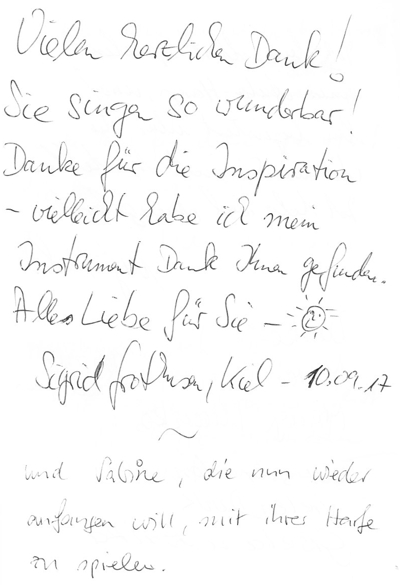 Vielen herzlichen Dank!
Sie singen so wunderbar!
Danke für die Inspiration
- vielleicht habe ich mein
Instrument Dank Ihnen gefunden.
Alles Liebe für Sie -
Sigrid, Kiel - 10.09.17
~
und Sabine, die nun wieder
anfangen will, mit ihrer Harfe
zu spielen.